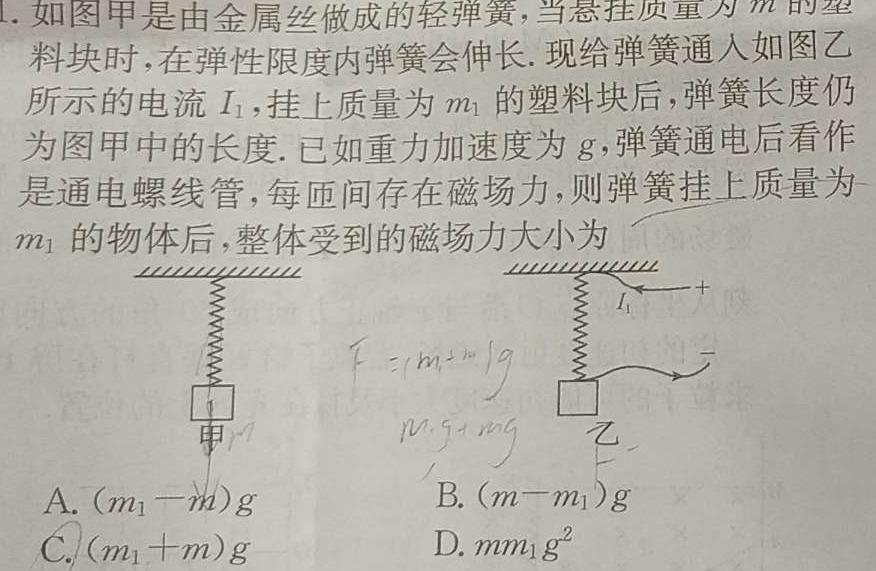 1. 如图甲是由金属丝做成的轻弹簧,当悬挂质量为 m 的塑
料块时,在弹性限度内弹簧会伸长. 现给弹簧通入如图乙
所示的电流 I₁,挂上质量为 m₁ 的塑料块后,弹簧长度仍
为图甲中的长度. 已知重力加速度为 g,弹簧通电后看作
是通电螺线管,每匝间存在磁场力,则弹簧挂上质量为
m₁ 的物体后,整体受到的磁场力大小为
I₁ +
−
F =(m₁+m)g
m₁g+mg
甲 m
乙
F
A. (m₁−m)g B. (m−m₁)g
C. (m₁+m)g D. mm₁g²